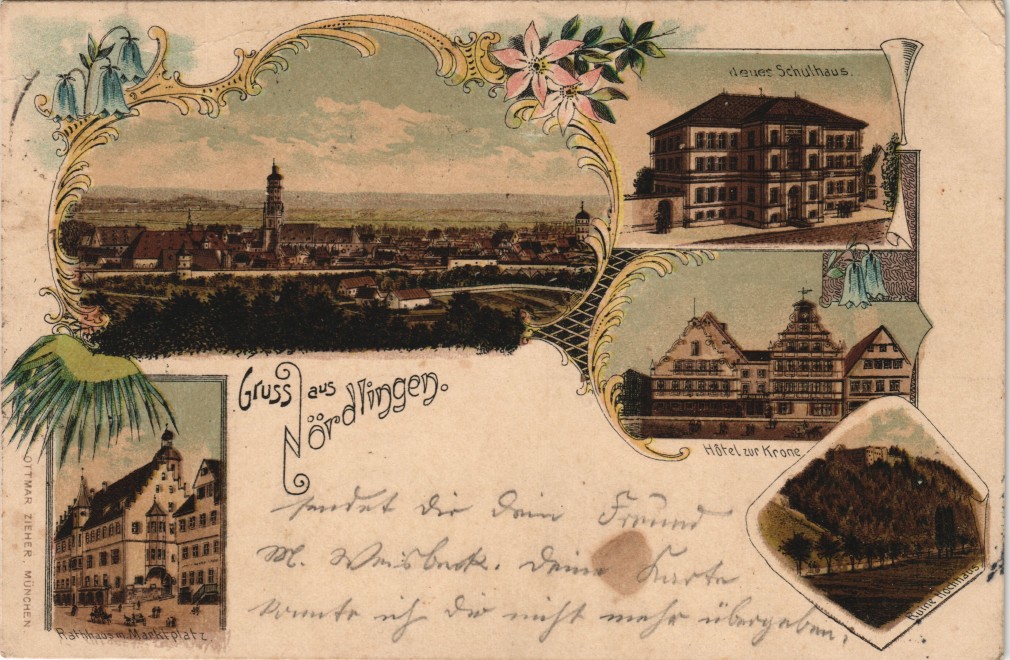 Neues Schulhaus.
Gruss aus
Nördlingen.
Hôtel zur Krone
Ruine Hochhaus
Rathhaus m. Marktplatz.
OTTMAR ZIEHER, MÜNCHEN
sendet dir dein Freund
M. Weisbeck. Deine Karte
konnte ich dir nicht mehr übergeben.